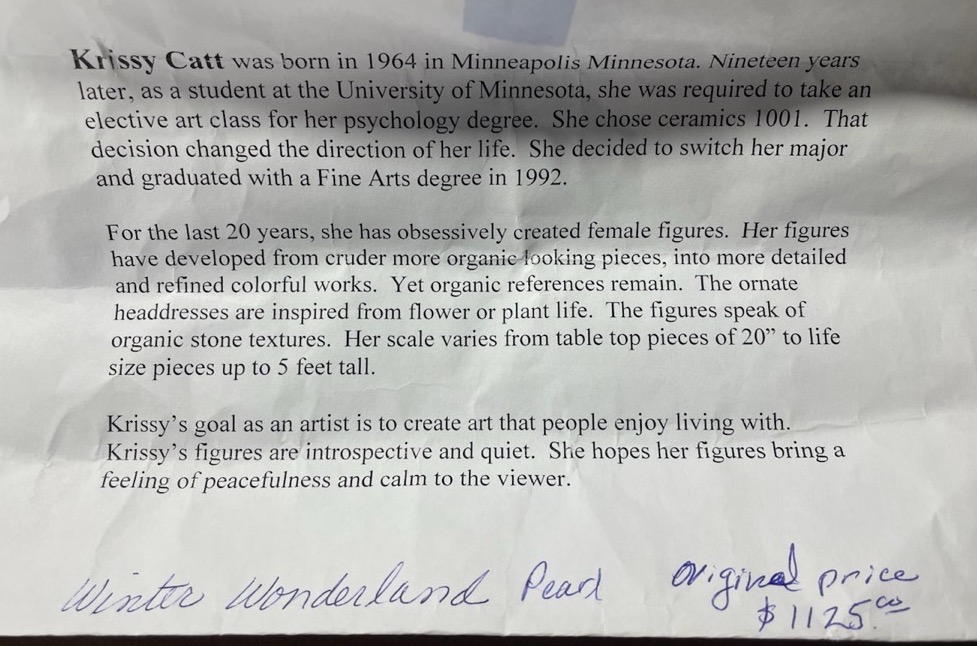 Krissy Catt was born in 1964 in Minneapolis Minnesota. Nineteen years
later, as a student at the University of Minnesota, she was required to take an
elective art class for her psychology degree. She chose ceramics 1001. That
decision changed the direction of her life. She decided to switch her major
and graduated with a Fine Arts degree in 1992.
For the last 20 years, she has obsessively created female figures. Her figures
have developed from cruder more organic looking pieces, into more detailed
and refined colorful works. Yet organic references remain. The ornate
headdresses are inspired from flower or plant life. The figures speak of
organic stone textures. Her scale varies from table top pieces of 20” to life
size pieces up to 5 feet tall.
Krissy’s goal as an artist is to create art that people enjoy living with.
Krissy’s figures are introspective and quiet. She hopes her figures bring a
feeling of peacefulness and calm to the viewer.
Winter Wonderland Pearl
original price
$1125.00